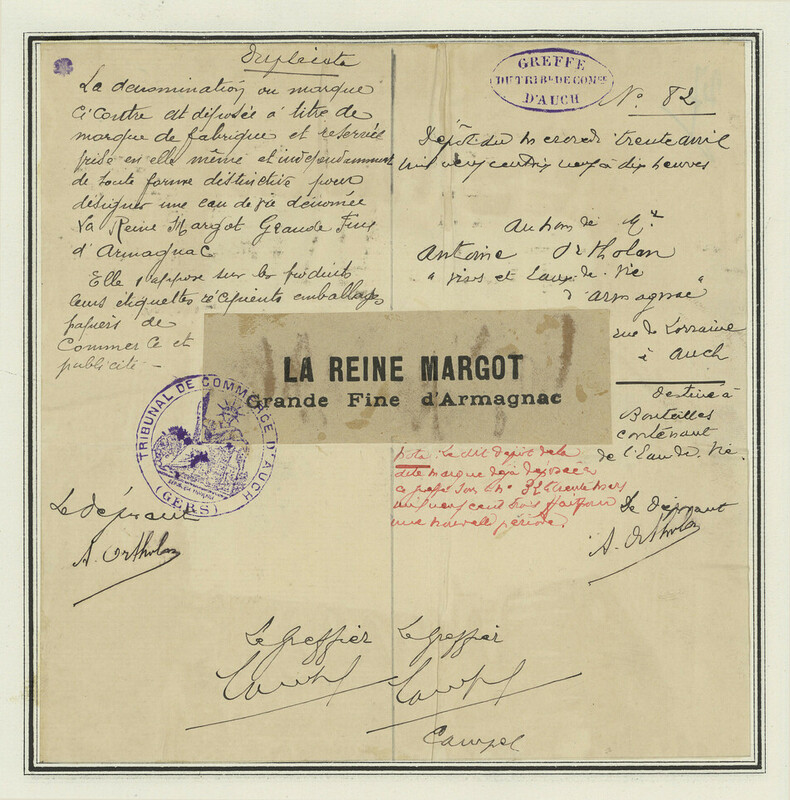 Duplicata
La dénomination ou marque
ci contre est déposée à titre de
marque de fabrique et réservée
prise en elle même et indépendamment
de toute forme distinctive pour
désigner une eau de vie dénomée
La Reine Margot Grande Fine
d'Armagnac
Elle s'appose sur les produits
leurs étiquettes récipients emballages
papiers de
Commerce et
publicité -
TRIBUNAL DE COMMERCE D'AUCH
(GERS)
Le déposant
A. Ortholan
GREFFE
DU TRIBal DE COMce
D'AUCH
No 82
Dépôt du mercredi trente avril
mil neuf cent à dix heures
Au nom de Mr
Antoine Ortholan
"Vins et Eaux de Vie
d'Armagnac"
rue de Lorraine
à Auch
LA REINE MARGOT
Grande Fine d'Armagnac
Destiné à
Bouteilles
contenant
de l'Eau de Vie.
Note Le dit dépôt de la
dite marque déjà déposée
mil neuf cent trois
une nouvelle période.
Le Déposant
A. Ortholan
Le Greffier
Le Greffier